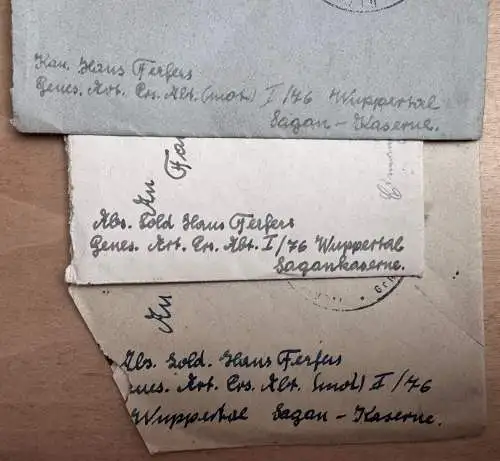 Kan. Hans Ferfers
Genes. Art. Ers. Abt. (mot.) I/76 Wuppertal
Sagan - Kaserne.
An
Fa
Abs. Sold Hans Ferfers
Genes. Art. Ers. Abt. I/76 Wuppertal
Sagankaserne.
An
Abs. Sold. Hans Ferfers
Genes. Art. Ers. Abt. (mot) I/76
Wuppertal Sagan - Kaserne.